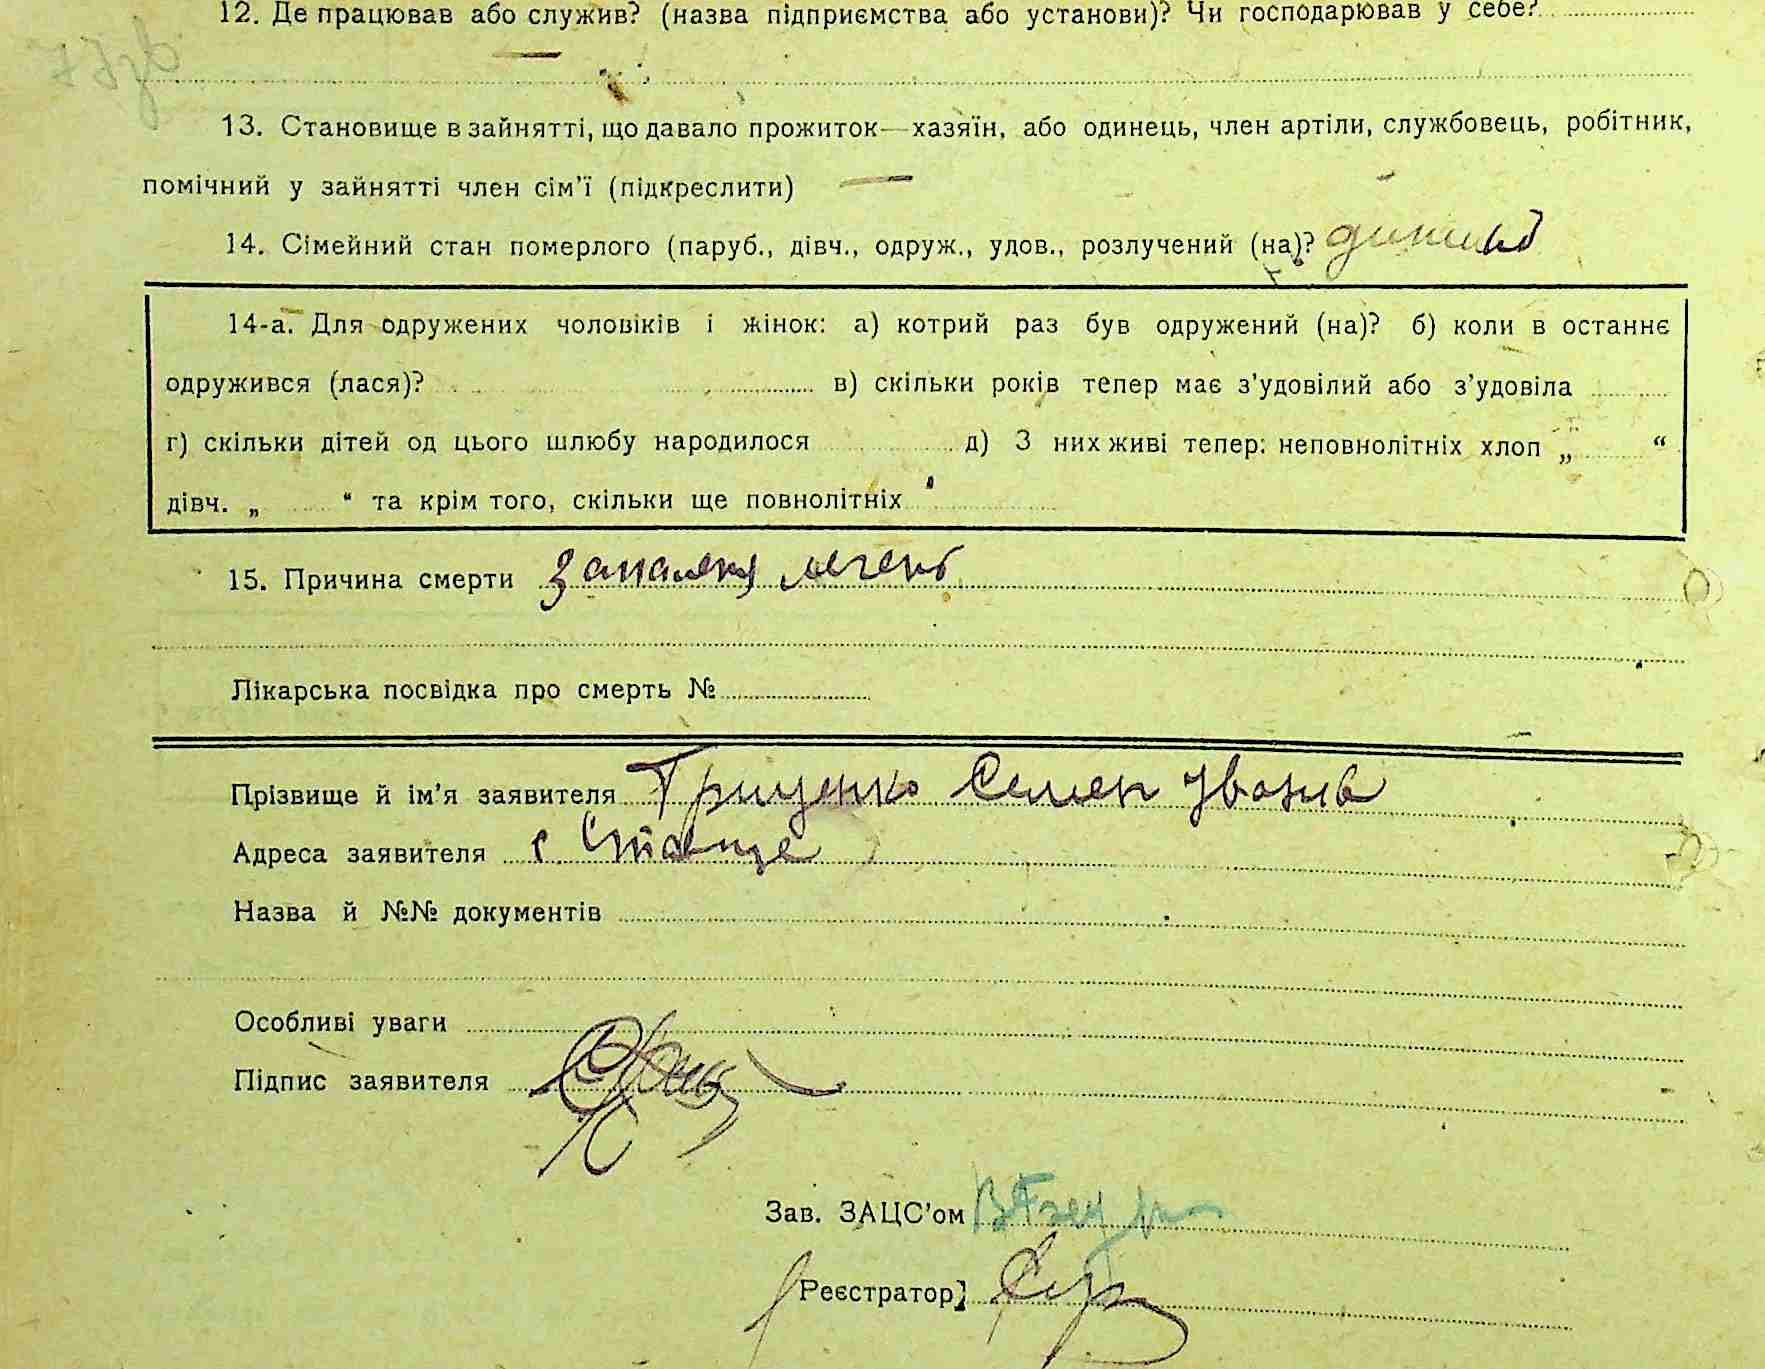 12. Де працював або служив? (назва підприємства або установи)? Чи господарював у себе?
13. Становище в зайнятті, що давало прожиток—хазяїн, або одинець, член артіли, службовець, робітник,
помічний у зайнятті член сім'ї (підкреслити) —
14. Сімейний стан померлого (паруб., дівч., одруж., удов., розлучений (на)?
14-а. Для одружених чоловіків і жінок: а) котрий раз був одружений (на)? б) коли в останнє
одружився (лася)? в) скільки років тепер має з'удовілий або з'удовіла
г) скільки дітей од цього шлюбу народилося д) З них живі тепер: неповнолітніх хлоп „ “
дівч. „ “ та крім того, скільки ще повнолітніх
15. Причина смерти запаленя легень
Лікарська посвідка про смерть №
Прізвище й ім'я заявителя Гриценко Семен Іванів
Адреса заявителя с.
Назва й №№ документів
Особливі уваги
Підпис заявителя
Зав. ЗАЦС'ом
Реєстратор